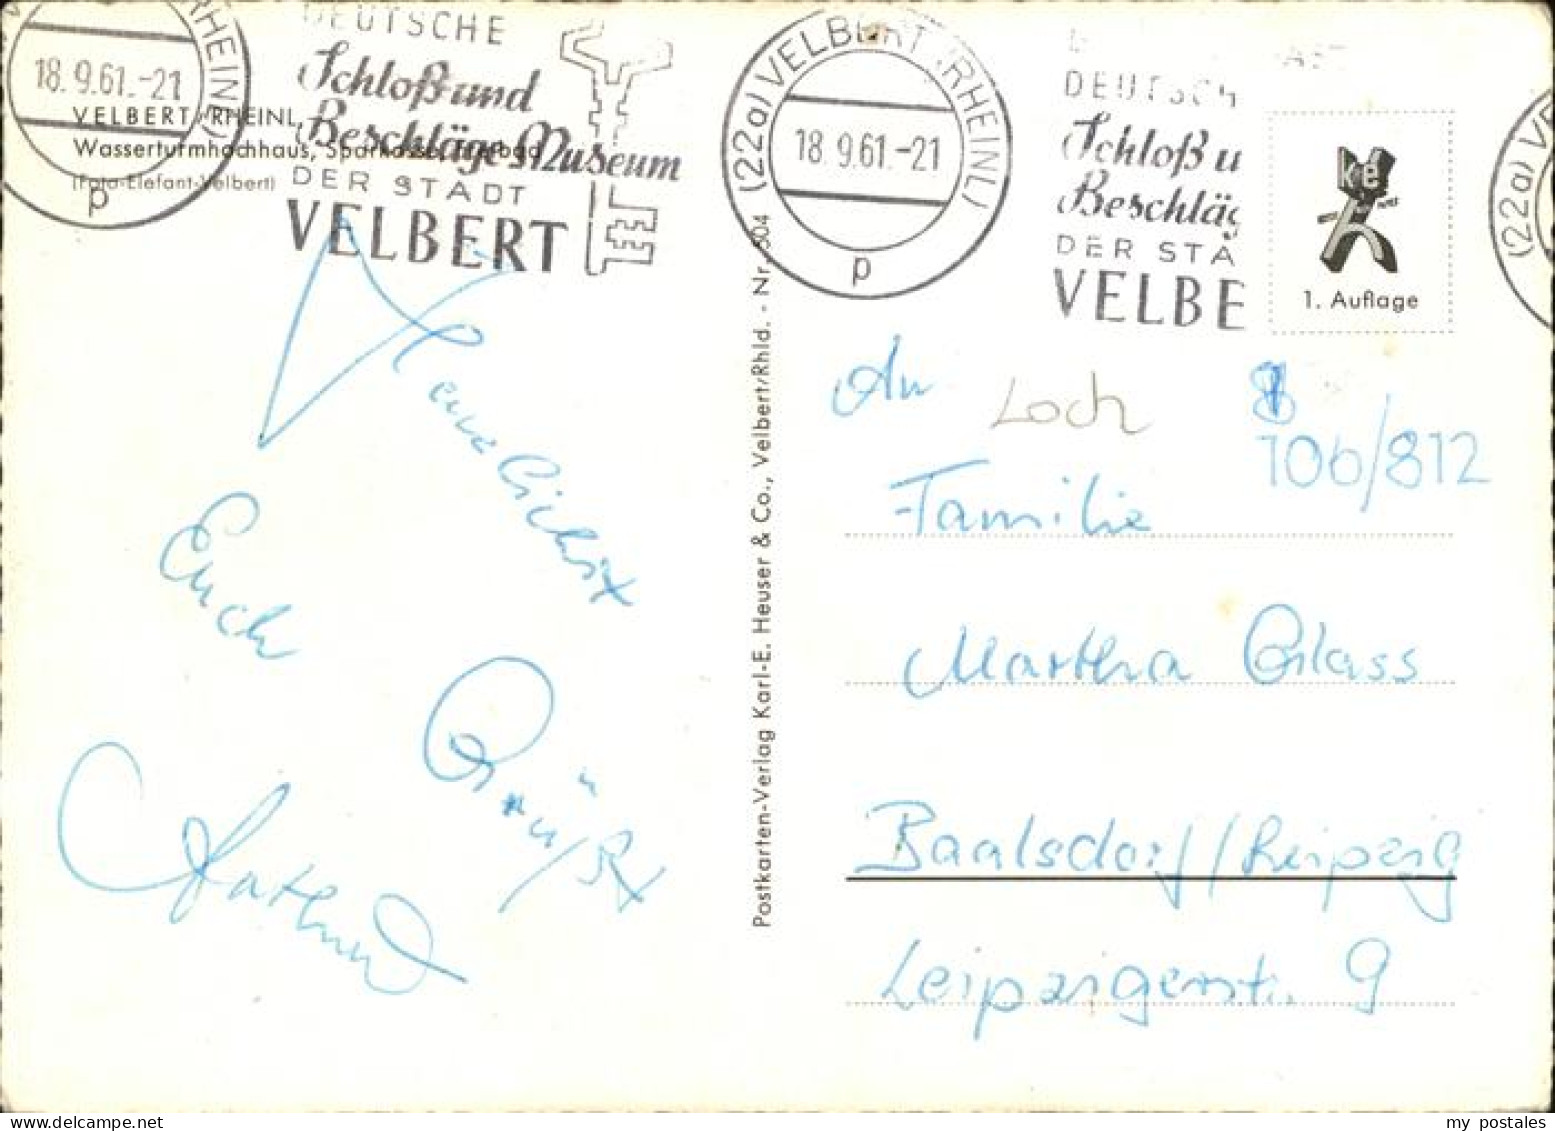 DEUTSCHE
Schloß und
Beschläge Museum
DER STADT
VELBERT
RHEINL)
18.9.61.-21
p
VELBERT/RHEINL.
Wasserturmhochhaus, Sparkasse,
(Foto-Elefant-Velbert)
Herzlichst
Euch
Grüßt
Postkarten-Verlag Karl-E. Heuser & Co., Velbert/Rhld. - Nr. 504
(22a) VELBERT (RHEINL)
18.9.61.-21
p
DEUTSCH
Schloß u
Beschläg
DER STA
VELBE
(22a) VE
ke
1. Auflage
An
Loch
106/812
Familie
Martha Glass
Baalsdorf/Leipzig
Leipzigerstr. 9
my postales